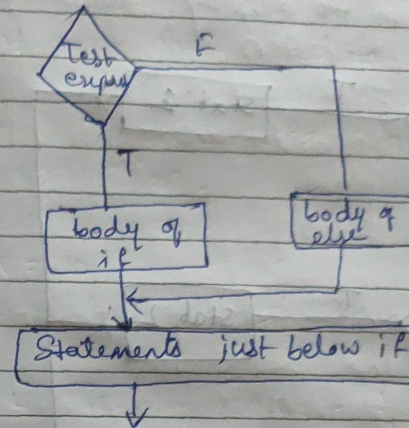 F
Test
T
body of
if
body of
else
Statements just below if